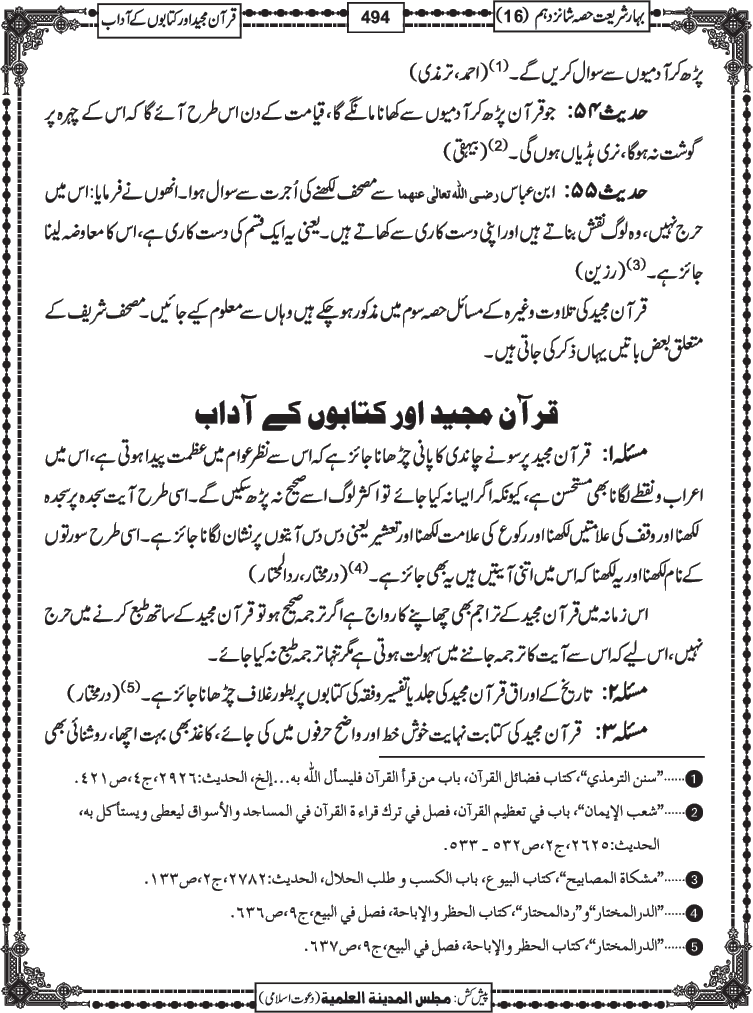 بہار شریعت حصہ شانزدہم (16)
494
قرآن مجید اور کتابوں کے آداب
پڑھ کر آدمیوں سے سوال کریں گے۔(1) (احمد، ترمذی)
حدیث ۵۴: جو قرآن پڑھ کر آدمیوں سے کھانا مانگے گا، قیامت کے دن اس طرح آئے گا کہ اس کے چہرہ پر
گوشت نہ ہوگا، نری ہڈیاں ہوں گی۔(2) (بیہقی)
حدیث ۵۵: ابن عباس رضی اللہ تعالٰی عنهما سے مصحف لکھنے کی اُجرت سے سوال ہوا۔ انھوں نے فرمایا: اس میں
حرج نہیں، وہ لوگ نقش بناتے ہیں اور اپنی دست کاری سے کھاتے ہیں۔ یعنی یہ ایک قسم کی دست کاری ہے، اس کا معاوضہ لینا
جائز ہے۔(3) (رزین)
قرآن مجید کی تلاوت وغیرہ کے مسائل حصہ سوم میں مذکور ہو چکے ہیں وہاں سے معلوم کیے جائیں۔ مصحف شریف کے
متعلق بعض باتیں یہاں ذکر کی جاتی ہیں۔
قرآن مجید اور کتابوں کے آداب
مسئلہ ۱: قرآن مجید پر سونے چاندی کا پانی چڑھانا جائز ہے کہ اس سے نظر عوام میں عظمت پیدا ہوتی ہے، اس میں
اعراب و نقطے لگانا بھی مستحسن ہے، کیونکہ اگر ایسا نہ کیا جائے تو اکثر لوگ اسے صحیح نہ پڑھ سکیں گے۔ اسی طرح آیت سجدہ پر سجدہ
لکھنا اور وقف کی علامتیں لکھنا اور رکوع کی علامت لکھنا اور تعشیر یعنی دس دس آیتوں پر نشان لگانا جائز ہے۔ اسی طرح سورتوں
کے نام لکھنا اور یہ لکھنا کہ اس میں اتنی آیتیں ہیں یہ بھی جائز ہے۔(4) (درمختار، ردالمحتار)
اس زمانہ میں قرآن مجید کے تراجم بھی چھاپنے کا رواج ہے اگر ترجمہ صحیح ہو تو قرآن مجید کے ساتھ طبع کرنے میں حرج
نہیں، اس لیے کہ اس سے آیت کا ترجمہ جاننے میں سہولت ہوتی ہے مگر تنہا ترجمہ طبع نہ کیا جائے۔
مسئلہ ۲: تاریخ کے اوراق قرآن مجید کی جلد یا تفسیر و فقہ کی کتابوں پر بطور غلاف چڑھانا جائز ہے۔(5) (درمختار)
مسئلہ ۳: قرآن مجید کی کتابت نہایت خوش خط اور واضح حرفوں میں کی جائے، کاغذ بھی بہت اچھا، روشنائی بھی
1 ......"سنن الترمذي"، كتاب فضائل القرآن، باب من قرأ القرآن فليسأل الله به...إلخ، الحديث:٢٩٢٦،ج٤،ص٤٢١.
2 ......"شعب الإيمان"، باب في تعظيم القرآن، فصل في ترك قراءة القرآن في المساجد والأسواق ليعطى ويستأكل به،
الحديث:٢٦٢٥،ج٢،ص٥٣٢ ـ ٥٣٣.
3 ......"مشكاة المصابيح"، كتاب البيوع، باب الكسب و طلب الحلال، الحديث:٢٧٨٢،ج٢،ص١٣٣.
4 ......"الدرالمختار"و"ردالمحتار"، كتاب الحظر والإباحة، فصل في البيع،ج٩،ص٦٣٦.
5 ......"الدرالمختار"، كتاب الحظر والإباحة، فصل في البيع،ج٩،ص٦٣٧.
پیش کش: مجلس المدینة العلمیة (دعوت اسلامی)